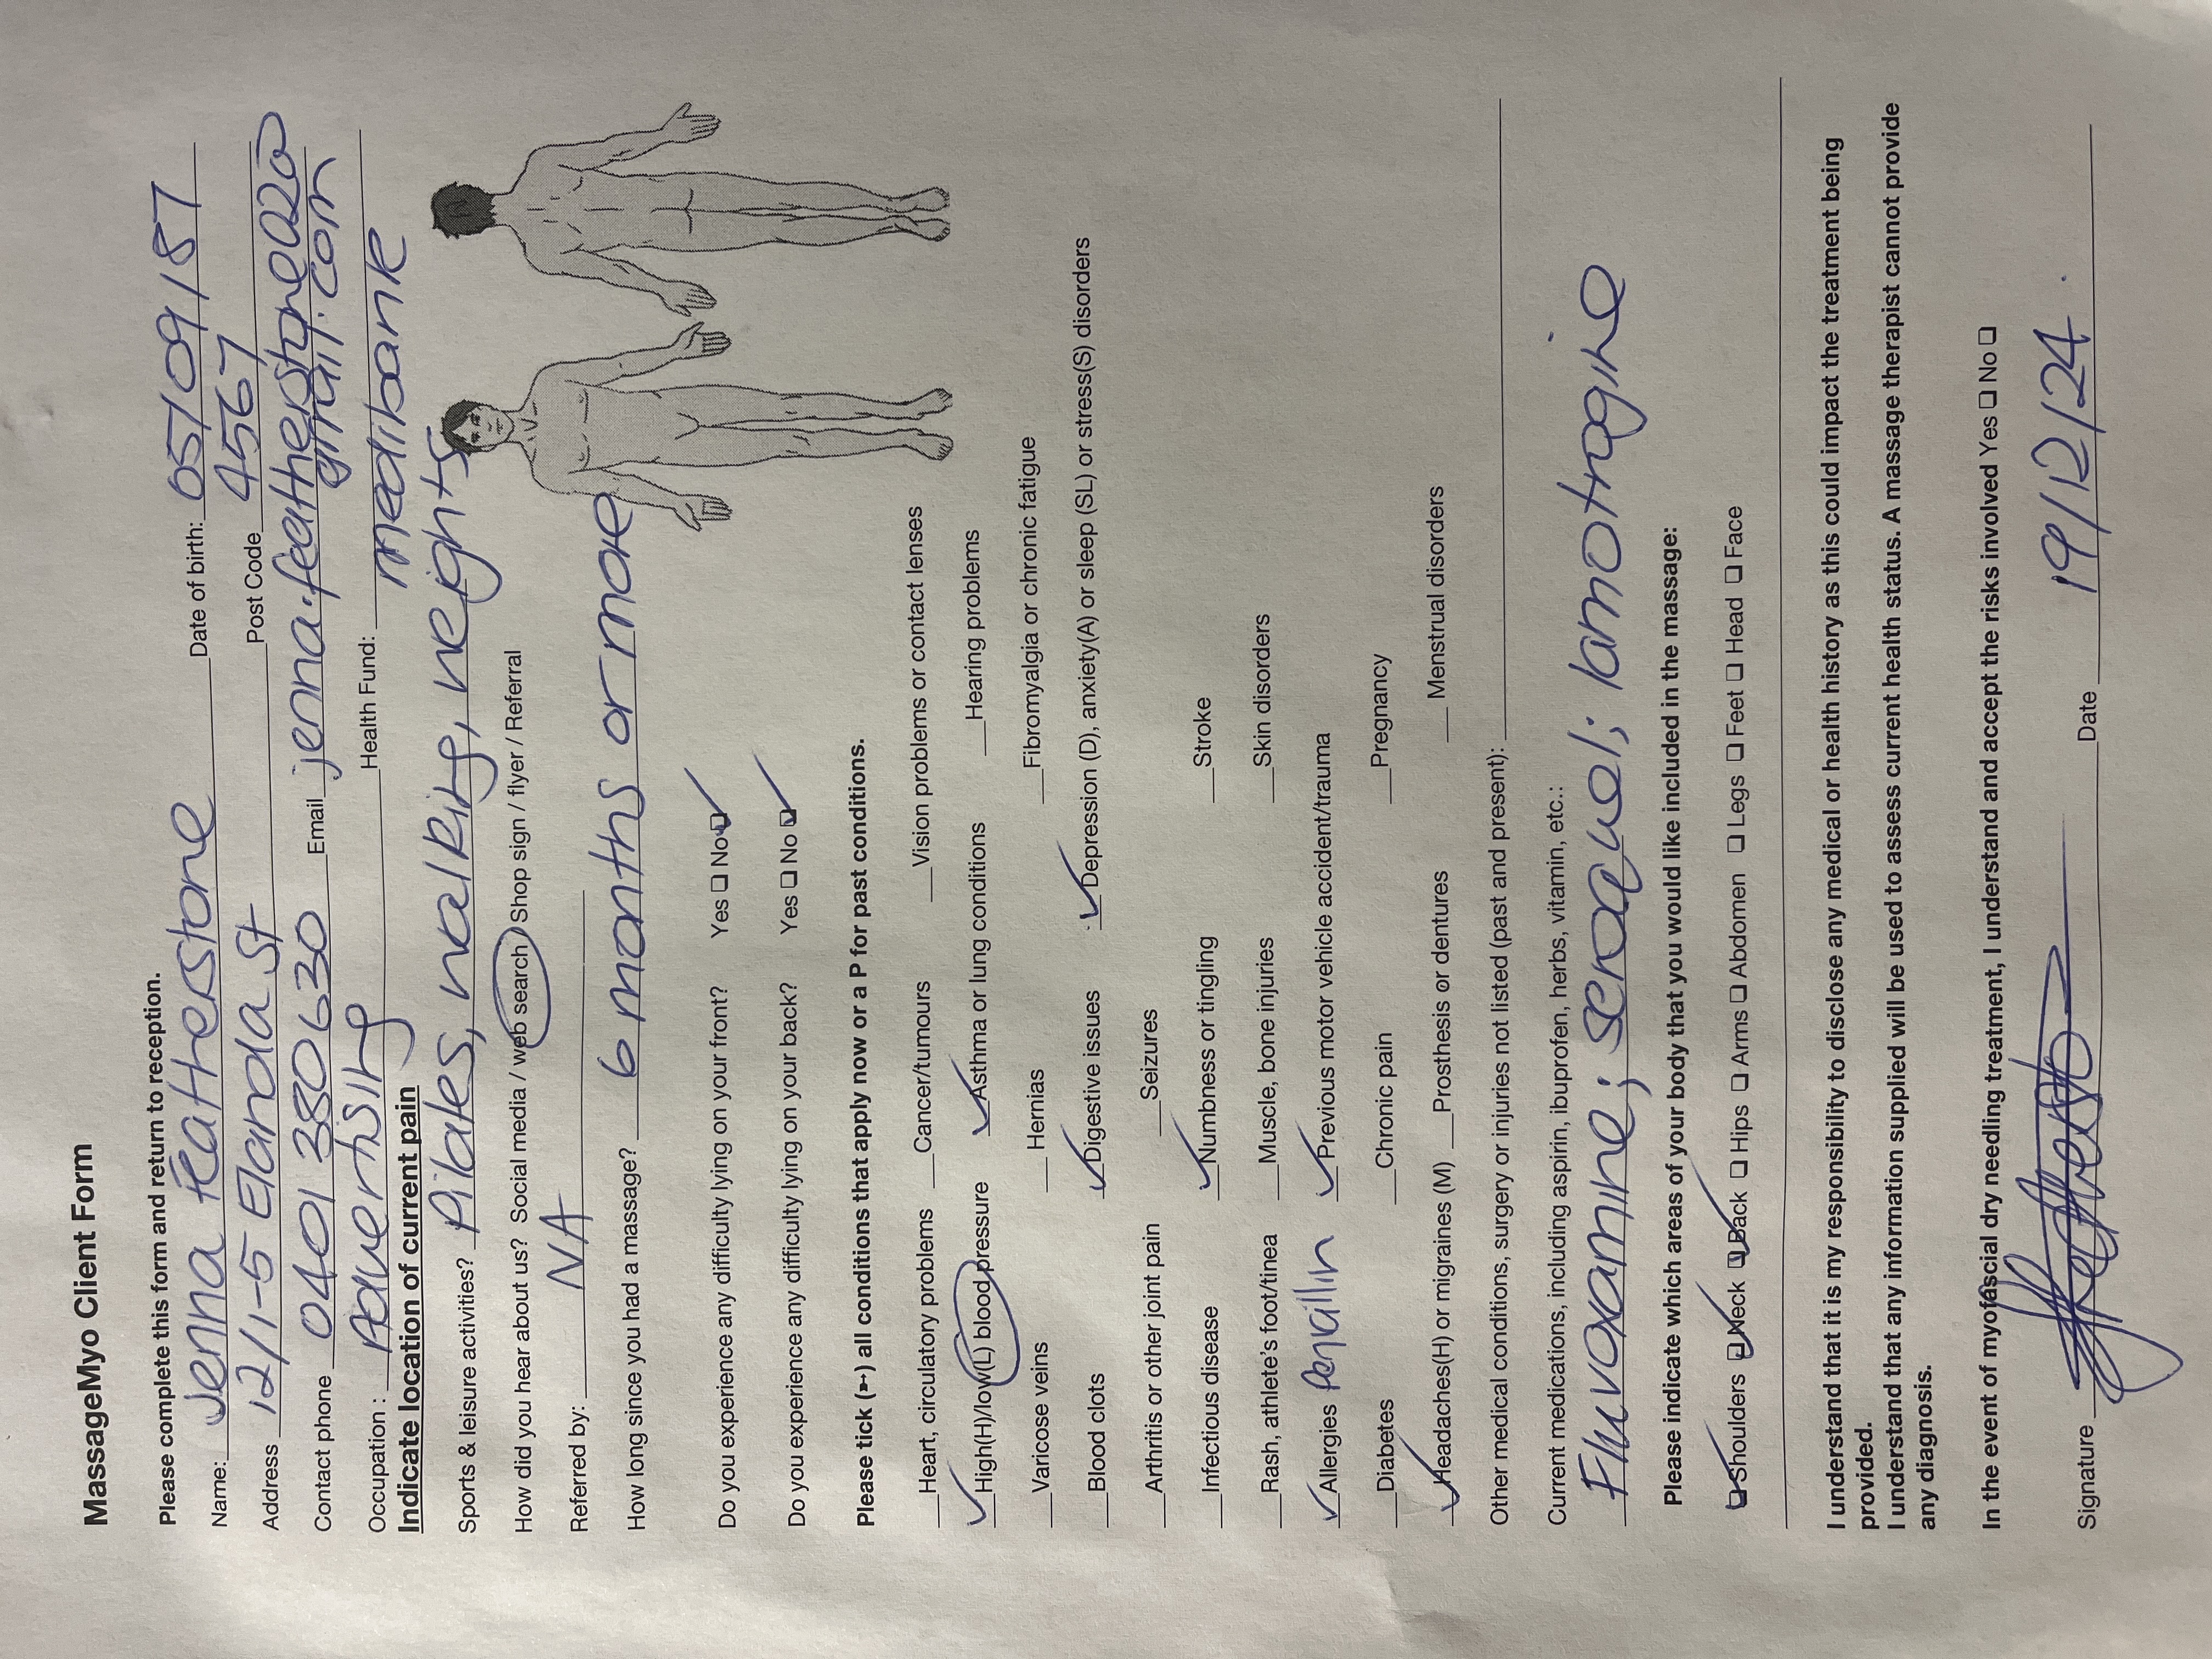 MassageMyo Client Form
Please complete this form and return to reception.
Name: Jenna Featherstone Date of birth: 05/09/87
Address 12/1-5 Elanda St Post Code 4567
Contact phone 0401 380 630 Email jenna.featherstone@
gmail.com
Occupation : Advertising Health Fund: medibank
Indicate location of current pain
Sports & leisure activities? Pilates, walking, weights
How did you hear about us? Social media / web search / Shop sign / flyer / Referral
Referred by: NA
How long since you had a massage? 6 months or more
Do you experience any difficulty lying on your front? Yes ❏ No ❏ ✓
Do you experience any difficulty lying on your back? Yes ❏ No ❏ ✓
Please tick (➵) all conditions that apply now or a P for past conditions.
__Heart, circulatory problems __Cancer/tumours __Vision problems or contact lenses
✓High(H)/low(L) blood pressure ✓Asthma or lung conditions __Hearing problems
__Varicose veins __ Hernias __Fibromyalgia or chronic fatigue
__Blood clots ✓Digestive issues ✓Depression (D), anxiety(A) or sleep (SL) or stress(S) disorders
__Arthritis or other joint pain __Seizures
__Infectious disease ✓Numbness or tingling __Stroke
__Rash, athlete's foot/tinea __Muscle, bone injuries __Skin disorders
✓Allergies Penicillin ✓Previous motor vehicle accident/trauma
__Diabetes __Chronic pain __Pregnancy
✓Headaches(H) or migraines (M) __Prosthesis or dentures __ Menstrual disorders
Other medical conditions, surgery or injuries not listed (past and present):
Current medications, including aspirin, ibuprofen, herbs, vitamin, etc.:
Fluvoxamine; seroquel; lamotrogine
Please indicate which areas of your body that you would like included in the massage:
❏ ✓Shoulders ❏ ✓Neck ❏ ✓Back ❏ Hips ❏ Arms ❏ Abdomen ❏ Legs ❏ Feet ❏ Head ❏ Face
I understand that it is my responsibility to disclose any medical or health history as this could impact the treatment being
provided.
I understand that any information supplied will be used to assess current health status. A massage therapist cannot provide
any diagnosis.
In the event of myofascial dry needling treatment, I understand and accept the risks involved Yes ❏ No ❏
Signature Date 19/12/24